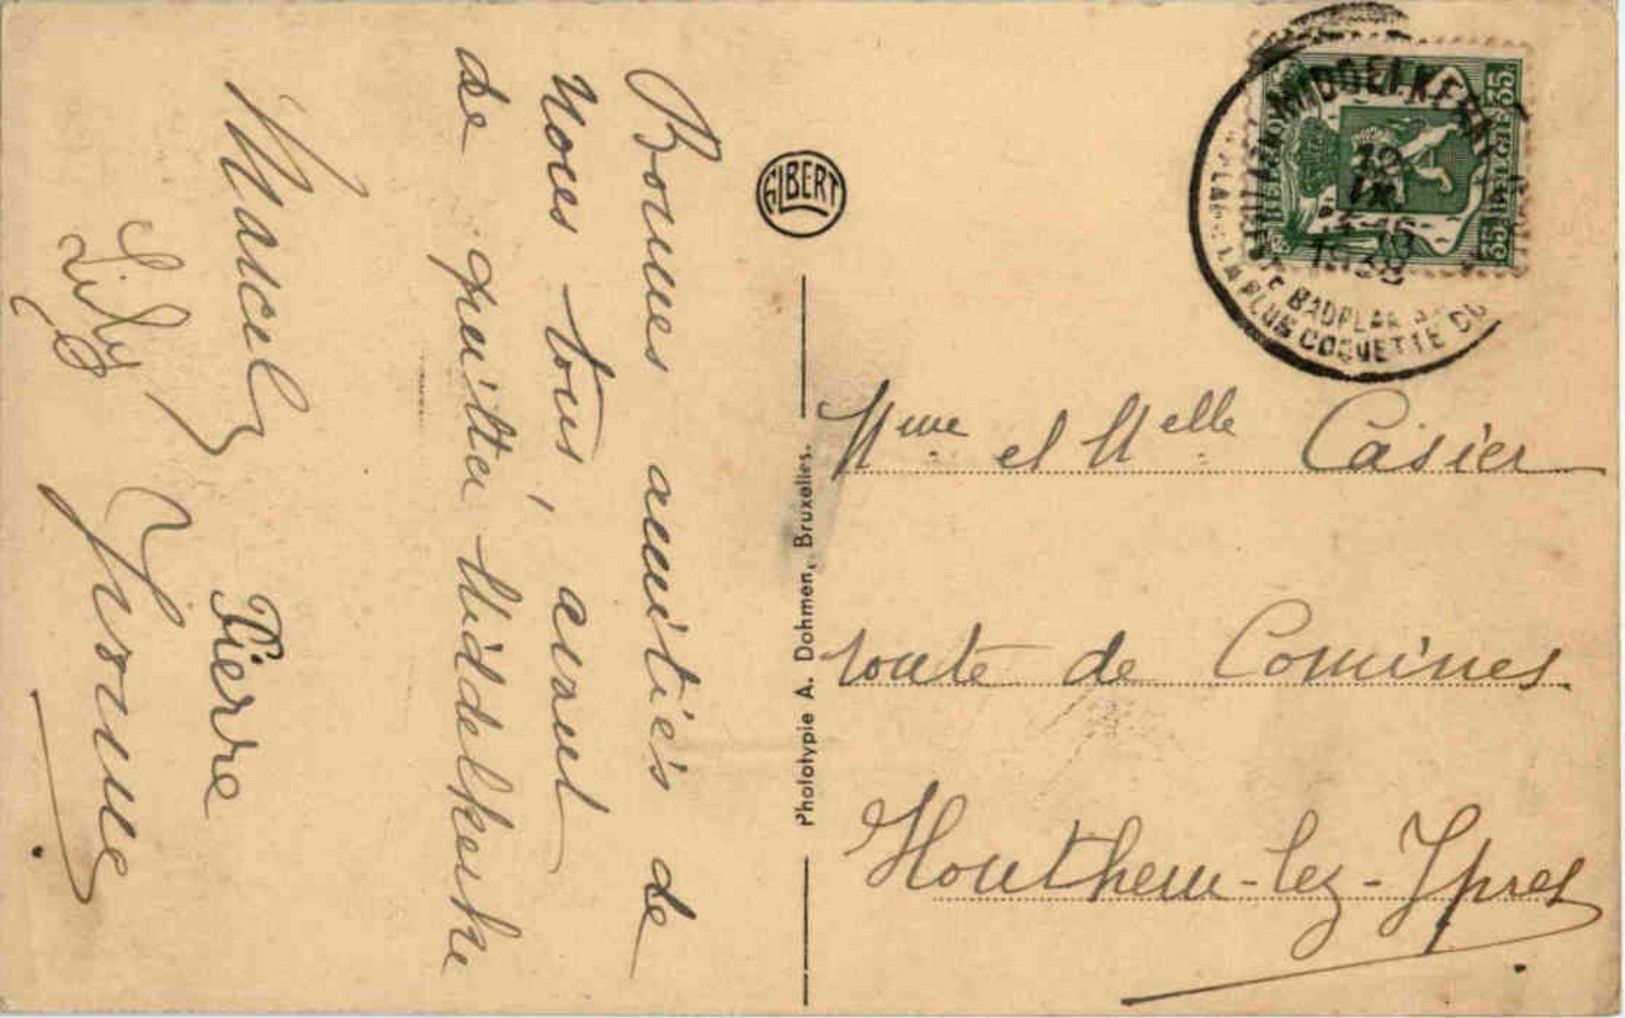 Bonnes amitiés de
nous tous, avant
de quitter Middelkerke
Marcel
Lily
Pierre
Yvonne
ELBERT
Phototypie A. Dohmen, Bruxelles.
35
BELGIE
35
MIDDELKERKE
1938
BADPLAA
LA PLUS COQUETTE DU
Mme et Melle Casier
route de Comines
Houthem-lez-Ypres